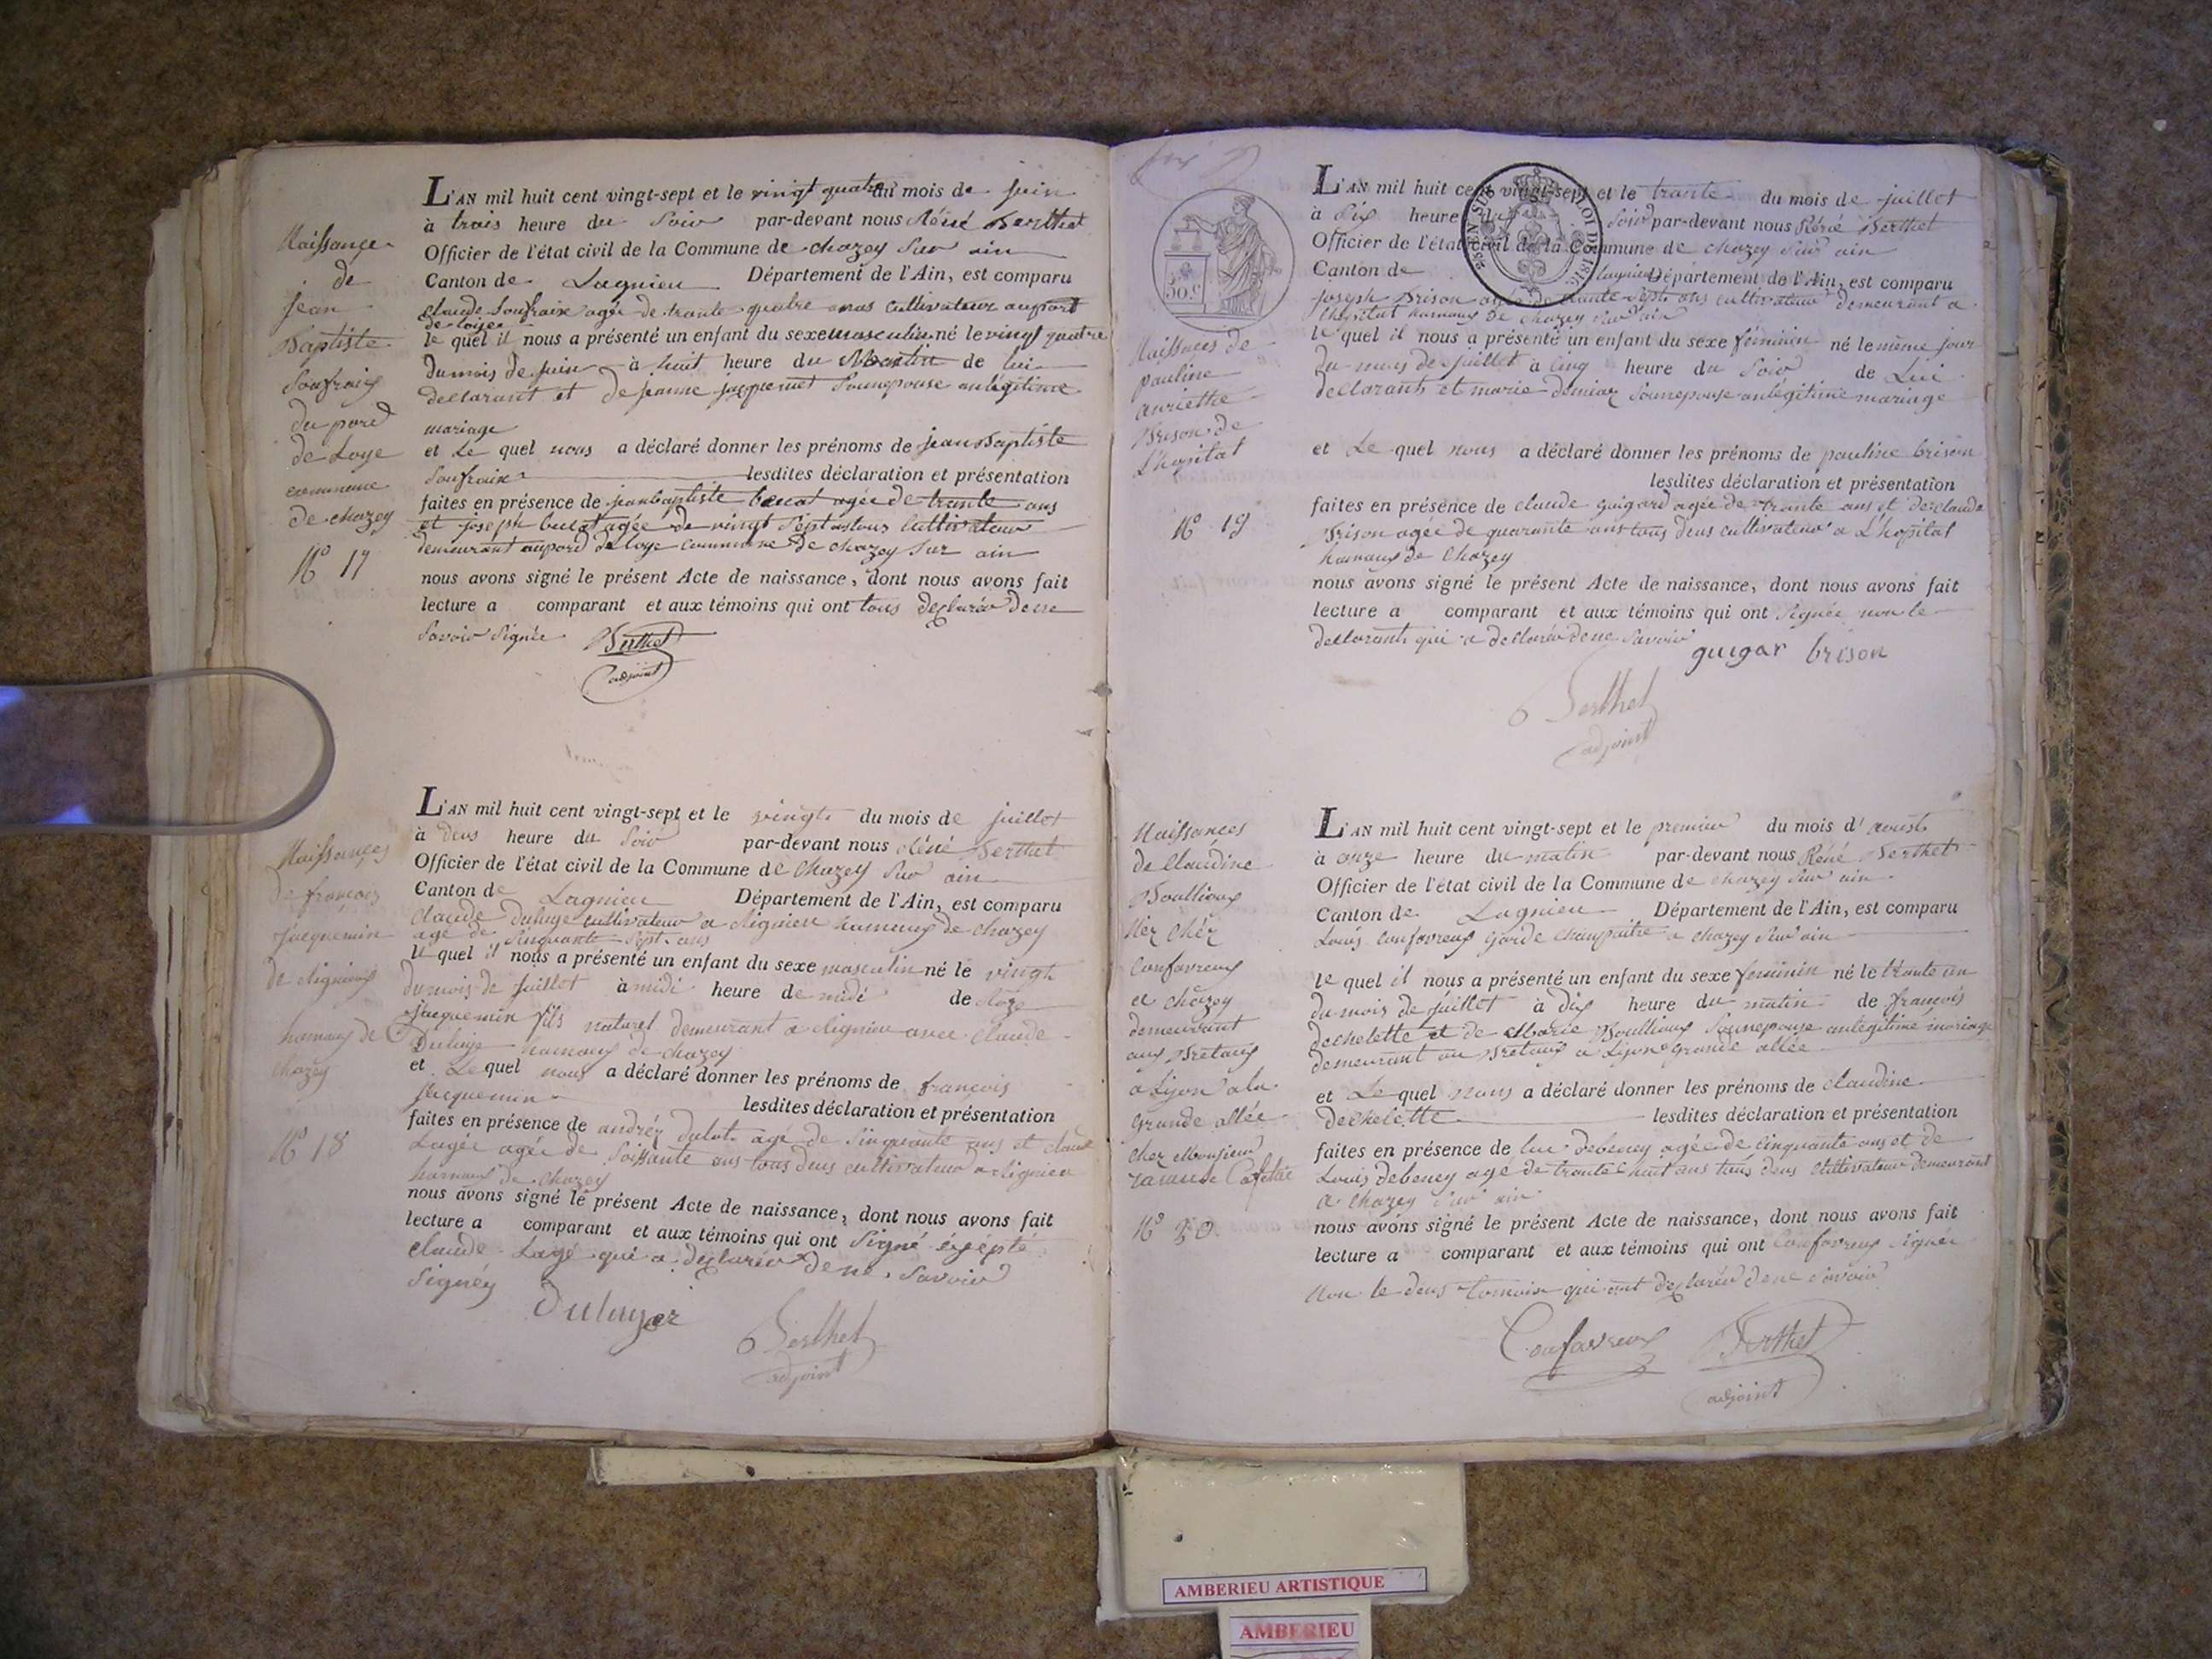 Naissance
de
jean
Baptiste
Soufraix
du pord
de Loye
commune
de chazey
N° 17
L'AN mil huit cent vingt-sept et le vingt quatre du mois de juin
à trois heure du Soir par-devant nous Réné Berthet
Officier de l'état civil de la Commune de chazey Sur ain
Canton de Lagnieu Département de l'Ain, est comparu
claude Soufraix agée de trante quatre ans cultivateur au port
de loye
le quel il nous a présenté un enfant du sexe masculin né le vingt quatre
du mois de juin à huit heure du Matin de lui
declarant et de jeanne jacquemet Son epouse an légitime
mariage
et Le quel nous a déclaré donner les prénoms de jean Baptiste
Soufraix lesdites déclaration et présentation
faites en présence de jean baptiste agée de trante ans
et joseph agée de vingt Sept ans tous cultivateur
demeurant au pord de loye commune de chazey Sur ain
nous avons signé le présent Acte de naissance, dont nous avons fait
lecture a comparant et aux témoins qui ont tous declarér de ne
Savoir Signée Berthet
adjoint
Naissances
de françois
jacquemin
de Rignieux
hamaux de
chazey
N° 18
L'AN mil huit cent vingt-sept et le vingt du mois de juillet
à deus heure du Soir par-devant nous Réné Berthet
Officier de l'état civil de la Commune de chazey Sur ain
Canton de Lagnieu Département de l'Ain, est comparu
claude cultivateur a Rignieu hamaux de chazey
agé de Sinquante Sept ans
le quel il nous a présenté un enfant du sexe masculin né le vingt
du mois de juillet à midi heure de midi de
jacquemin fils naturel demeurant a Rignieu avec claude
hamaux de chazey
et Le quel nous a déclaré donner les prénoms de françois
jacquemin lesdites déclaration et présentation
faites en présence de andréy agé de Sinquante ans et claude
Lagée agée de Soissante ans tous deus cultivateur a Rignieu
hamaux de chazey
nous avons signé le présent Acte de naissance, dont nous avons fait
lecture a comparant et aux témoins qui ont Signé
claude Lagé qui a declarér de ne Savoir
Signéy
Berthet
adjoint
50 c
EN SUS LOI DE 1816
Naissances de
pauline
anriethe
Brison de
L'hopital
N° 19
L'AN mil huit cent vingt-sept et le trante du mois de juillet
à Six heure du Soir par-devant nous Réné Berthet
Officier de l'état civil de la Commune de chazey Sur ain
Canton de Lagnieu Département de l'Ain, est comparu
joseph Brison agée de trante Sept ans cultivateur demeurant a
L'hopital hamaux de chazey Sur ain
le quel il nous a présenté un enfant du sexe féminin né le même jour
du mois de juillet à cinq heure du Soir de Lui
declarant et marie Son epouse an légitime mariage
et Le quel nous a déclaré donner les prénoms de pauline brison
lesdites déclaration et présentation
faites en présence de claude guigard agée de trante ans et de claude
Brison agée de quarante ans tous deus cultivateur a L'hopital
hamaux de chazey
nous avons signé le présent Acte de naissance, dont nous avons fait
lecture a comparant et aux témoins qui ont Signée non le
declarant qui a declarér de ne Savoir
guigar brison
Berthet
adjoint
Naissances
de claudine
Boullioux
chér
Confavreux
a chazey
demeurant
aux Bretaux
a Lyon a la
grande allée
chez Monsieur
N° 20
L'AN mil huit cent vingt-sept et le premier du mois d'aoust
à onze heure du matin par-devant nous Réné Berthet
Officier de l'état civil de la Commune de chazey Sur ain
Canton de Lagnieu Département de l'Ain, est comparu
Louis Confavreux garde champaitre a chazey Sur ain
le quel il nous a présenté un enfant du sexe feminin né le trante un
du mois de juillet à dix heure du matin de françois
dechelette et de Marie Boullioux Son epouse an légitime mariage
demeurant au Bretaux a Lyon grande allée
et Le quel nous a déclaré donner les prénoms de claudine
dechelette lesdites déclaration et présentation
faites en présence de luc debeney agée de cinquante ans et de
Louis debeney age de trante huit ans tous deus cultivateur demeurant
a chazey Sur ain
nous avons signé le présent Acte de naissance, dont nous avons fait
lecture a comparant et aux témoins qui ont Confavreux signer
Non le deus tomoin qui ont declarér de ne savoir
Confavreux Berthet
adjoint
AMBERIEU ARTISTIQUE
AMBERIEU